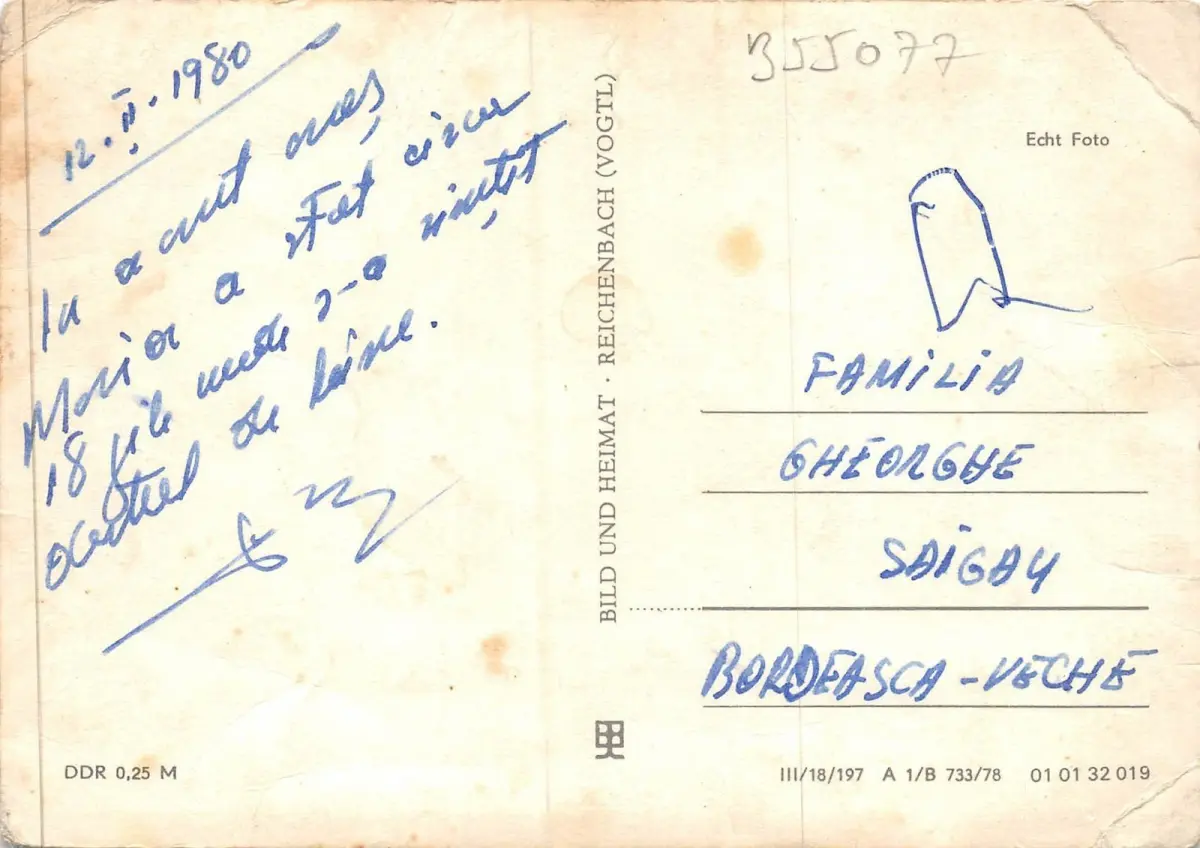 12.II.1980
În acest oraș,
Maria a stat circa
18 zile unde s-a simțit
destul de bine.
BILD UND HEIMAT · REICHENBACH (VOGTL)
355077
Echt Foto
FAMILIA
GHEORGHE
SAIGAU
BORDEASCA-VECHE
DDR 0,25 M
III/18/197 A 1/B 733/78 01 01 32 019